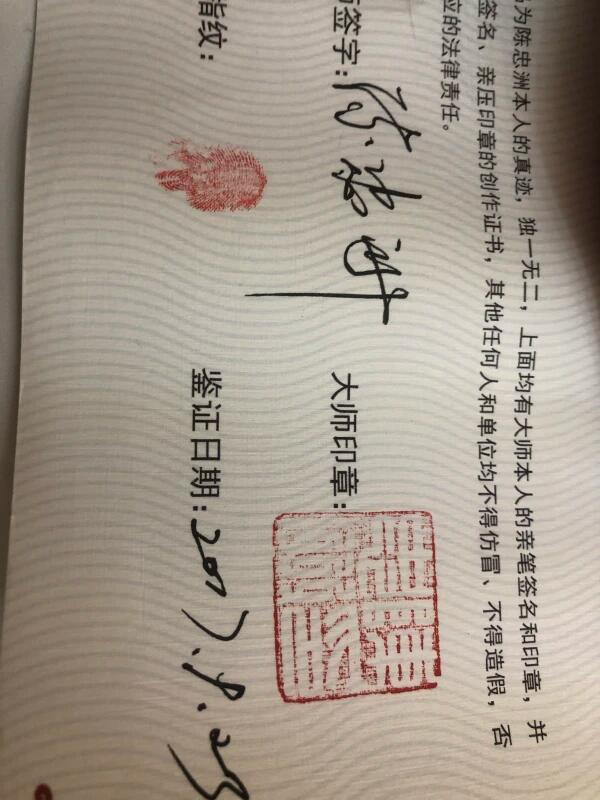 为陈忠洲本人的真迹，独一无二，上面均有大师本人的亲笔签名和印章，并
签名、亲压印章的创作证书，其他任何人和单位均不得仿冒、不得造假，否
应的法律责任。
签字：陈忠洲
大师印章：
指纹：
鉴证日期：2017.9.25